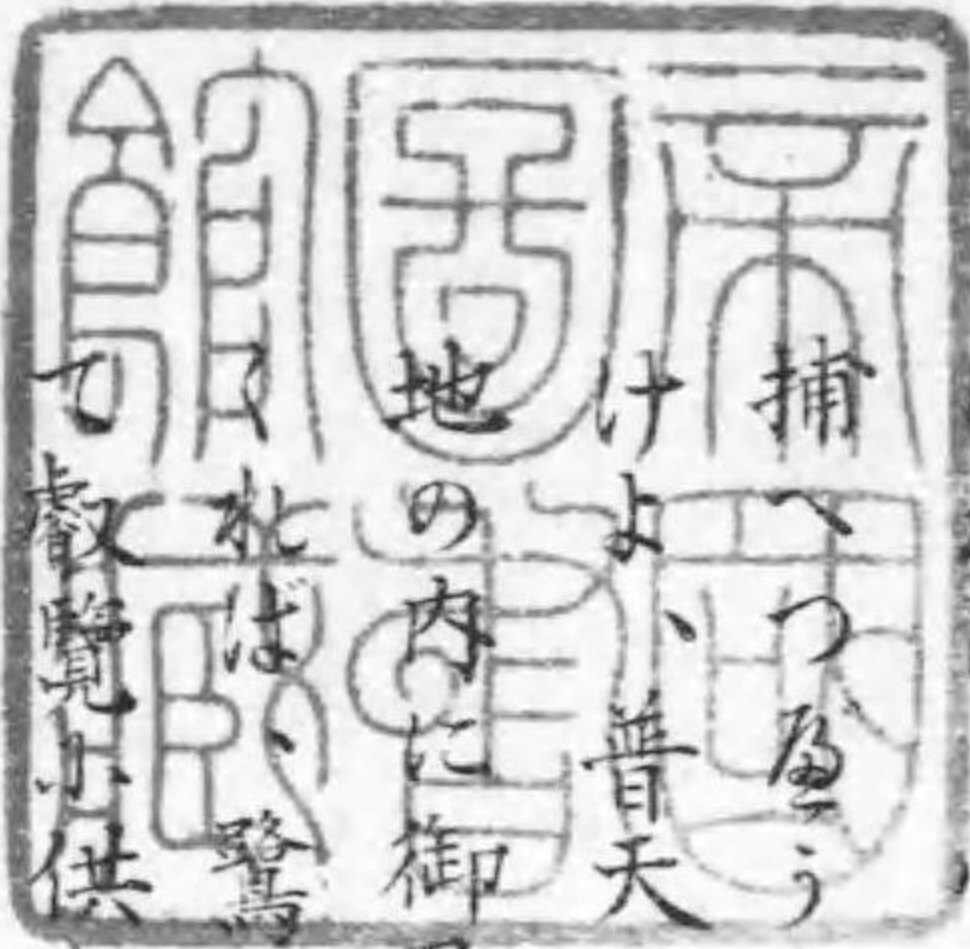 帝國
圖書
館藏
捕へつべう
けよ、普天
地の内に御
くれば、鷺
て叡覽に供